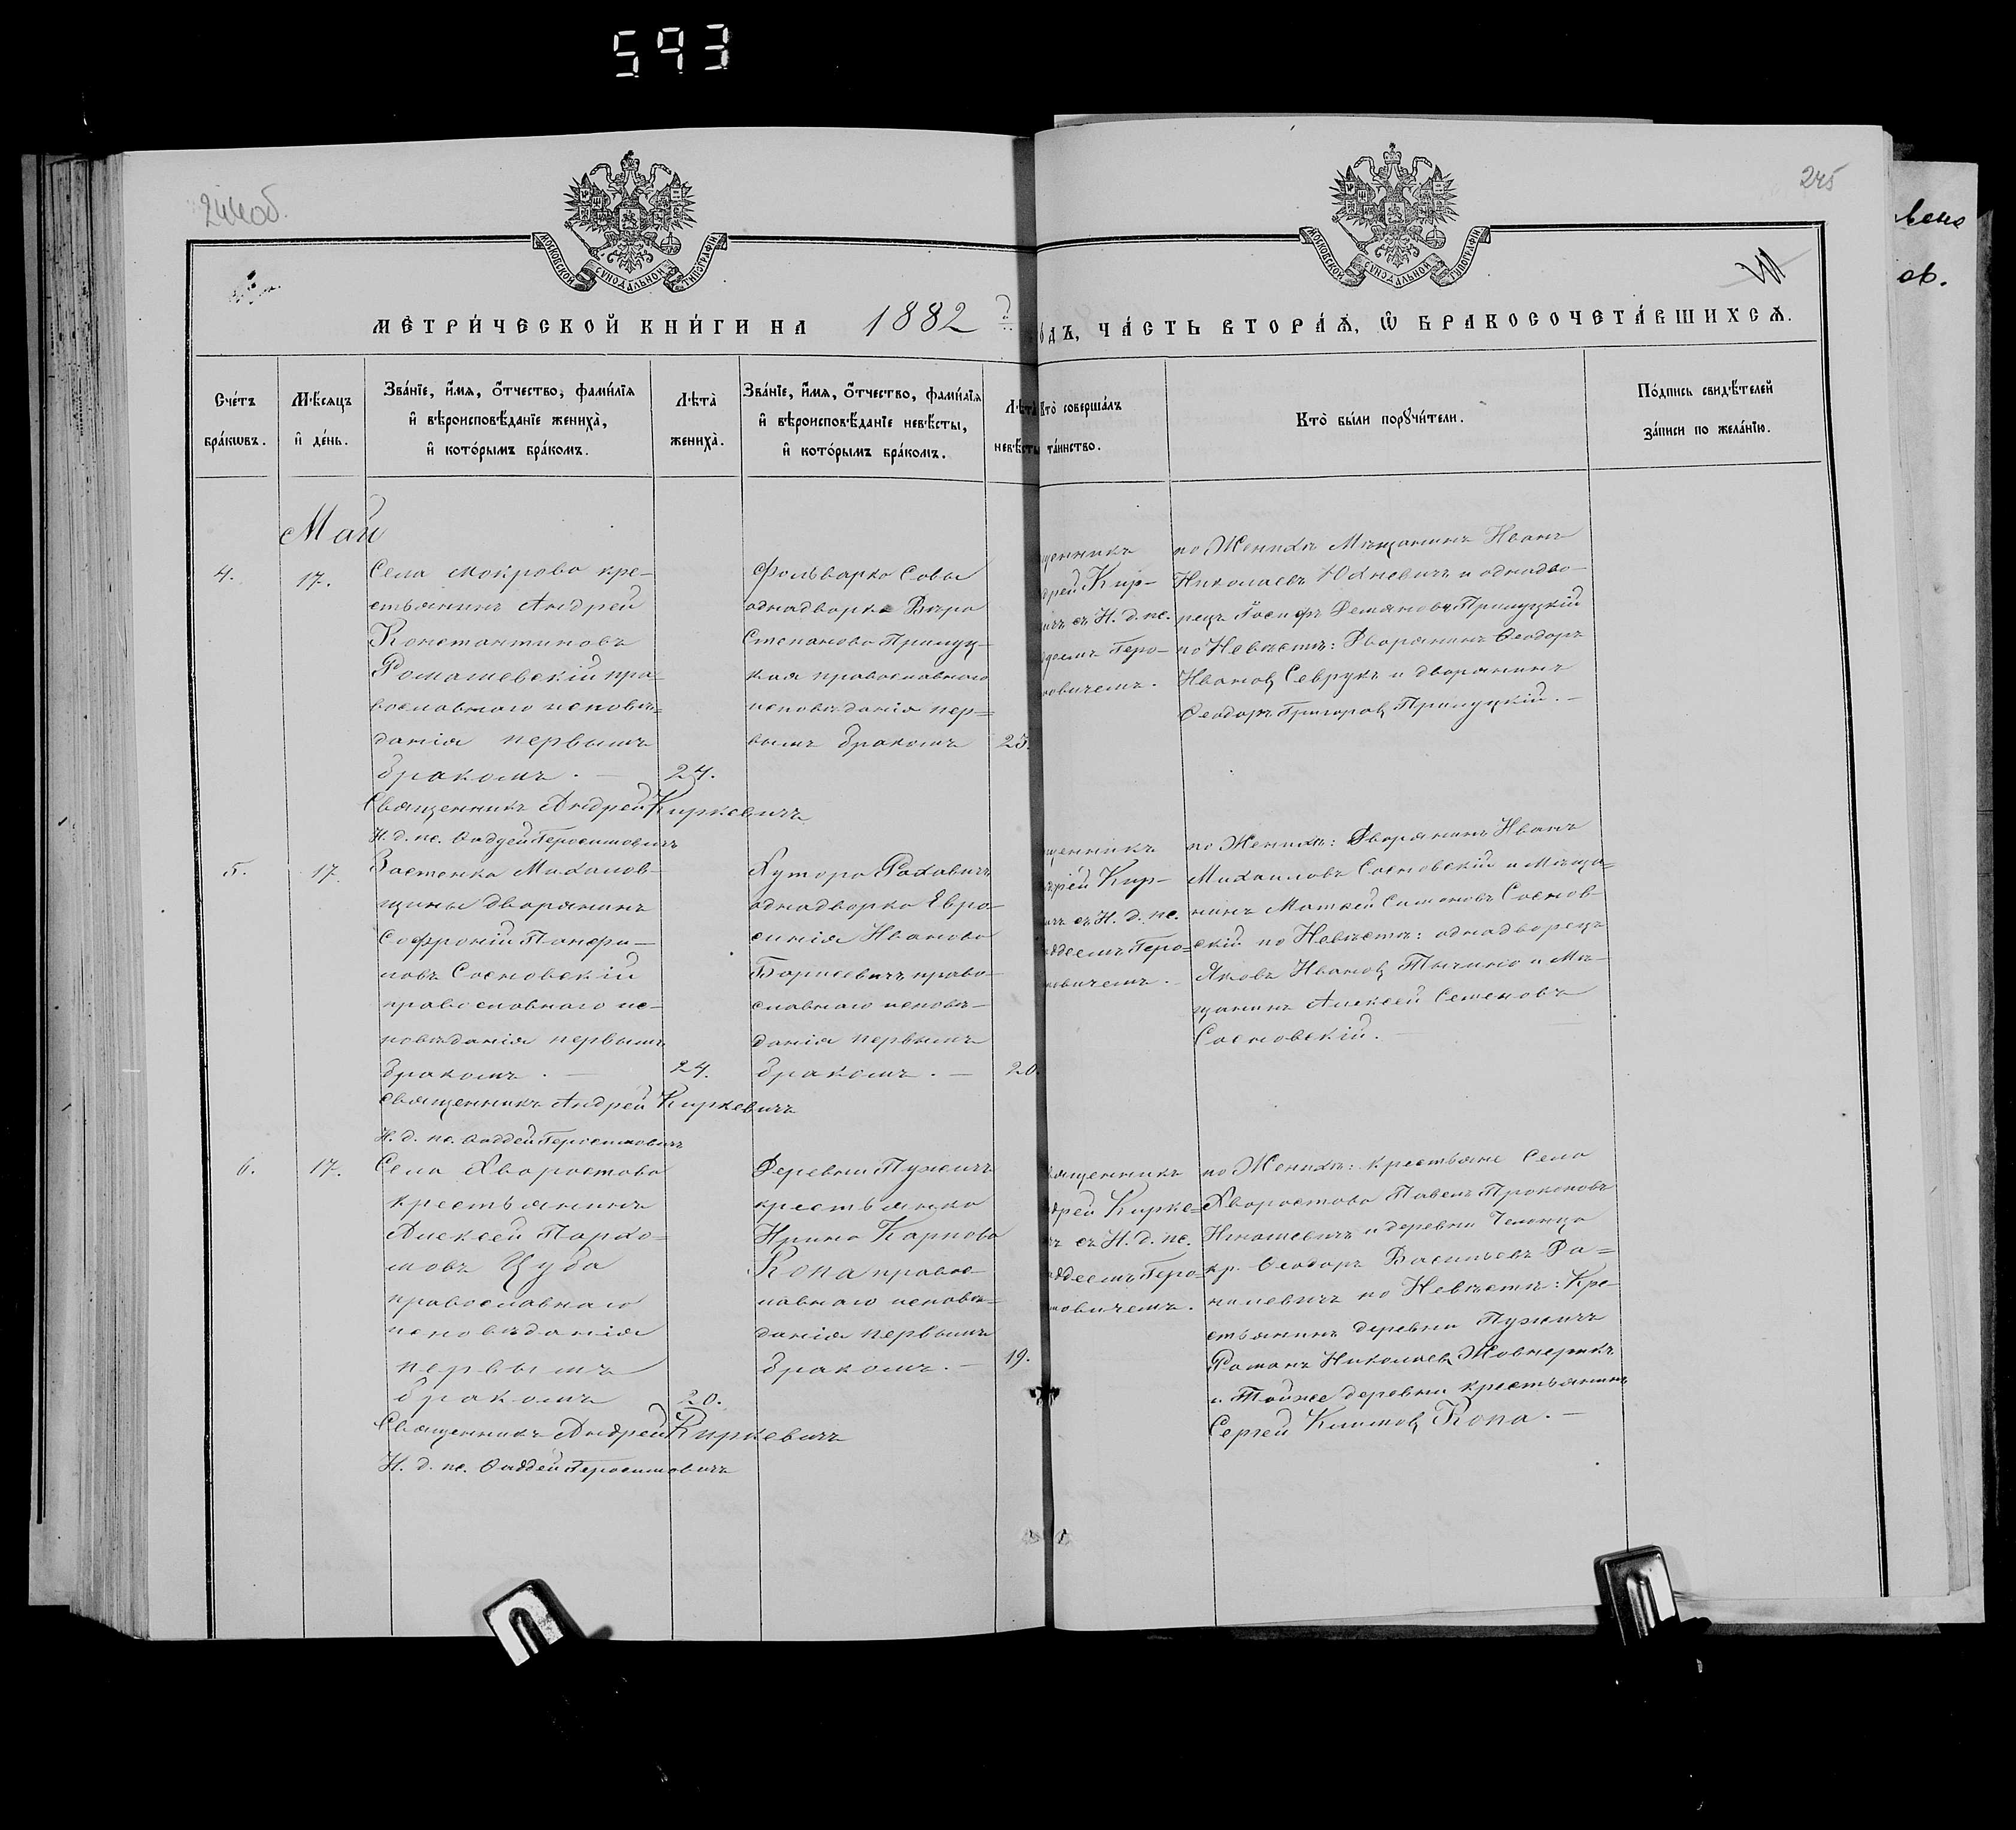 593
244об.
245
МОСКОВСКОЙ СѴНОДАЛЬНОЙ ТИПОГРАФІИ
МОСКОВСКОЙ СѴНОДАЛЬНОЙ ТИПОГРАФІИ
МЕТРИ́ЧЕСКОЙ КНИ́ГИ НА 1882 го́дъ, ЧА́СТЬ ВТОРА́Ѧ, Ѡ҆ БРАКОСОЧЕТА́ВШИХСѦ.
Сче́тъ бра́кѡвъ.
Мѣ́сяцъ и҆ де́нь.
Зва́нїе, и҆́мя, ѻ҆́тчество, фами́лїя и҆ вѣроисповѣ́данїе жениха̀, и҆ кото́рымъ бра́комъ.
Лѣта̀ жениха̀.
Зва́нїе, и҆́мя, ѻ҆́тчество, фами́лїя и҆ вѣроисповѣ́данїе невѣ́сты, и҆ кото́рымъ бра́комъ.
Лѣта̀ невѣ́сты
Кто̀ соверша́лъ та́инство.
Кто̀ бы́ли порꙋчи́тели.
По́дпись свидѣ́телей за́писи по жела́нїю.
Май
4.
17.
Села Мокрова кре-
стьянинъ Андрей
Константиновъ
Ромашевскій пра-
вославнаго исповѣ-
данія первымъ
бракомъ. —
24.
Фольварка Совы
однадворка Вѣра
Степанова Прилуц-
кая православнаго
исповѣданія пер-
вымъ бракомъ
23.
щенникъ
дрей Кир-
ичъ съ И. д. пс.
деемъ Гера-
мовичемъ.
по Женихѣ Мѣщанинъ Иванъ
Николаевъ Юхневичъ и однадво-
рецъ Іосифъ Демяновъ Прилуцкій
по Невѣстѣ: Дворянинъ Ѳеодоръ
Ивановъ Севрукъ и дворянинъ
Ѳеодоръ Григоровъ Прилуцкій. —
Священникъ Андрей Киркевичъ
И. д. пс. Ѳаддей Герасимовичъ
5.
17.
Застенка Михалов-
щины дворянинъ
Софроній Панфи-
ловъ Сосновскій
православнаго ис-
повѣданія первымъ
бракомъ. —
24.
Хутора Раховичъ
однадворка Евро-
синія Иванова
Борисевичъ право-
славнаго исповѣ-
данія первымъ
бракомъ. —
20.
щенникъ
дрей Кир-
ичъ съ И. д. пс.
аддеемъ Гера-
мовичемъ.
по Женихѣ: Дворянинъ Иванъ
Михаиловъ Сосновскій и Мѣща-
нинъ Матѳей Симоновъ Соснов-
скій по Невѣстѣ: однадворецъ
Яковъ Ивановъ Тычино и Мѣ-
щанинъ Алексей Семеновъ
Сосновскій. —
Священникъ Андрей Киркевичъ
И. д. пс. Ѳаддей Герасимовичъ
6.
17.
Села Хворостова
крестьянинъ
Алексей Пархо-
мовъ Цуба
православнаго
исповѣданія
первымъ
бракомъ
20.
Деревни Пужичъ
крестьянка
Ирина Карпова
Копа правос-
лавнаго исповѣ-
данія первымъ
бракомъ. —
19.
вященникъ
дрей Кирке-
ъ съ И. д. пс.
аддеемъ Гера-
мовичемъ.
по Женихѣ: крестьяне Села
Хворостова Павелъ Прокоповъ
и деревни
кр. Ѳеодоръ Васильевъ Ра-
по Невѣстѣ: Кре-
стьянинъ деревни Пужичъ
Романъ Николаевъ Жовнерикъ
и Тойже деревни крестьянинъ
Сергей Климовъ Копа. —
Священникъ Андрей Киркевичъ
И. д. пс. Ѳаддей Герасимовичъ